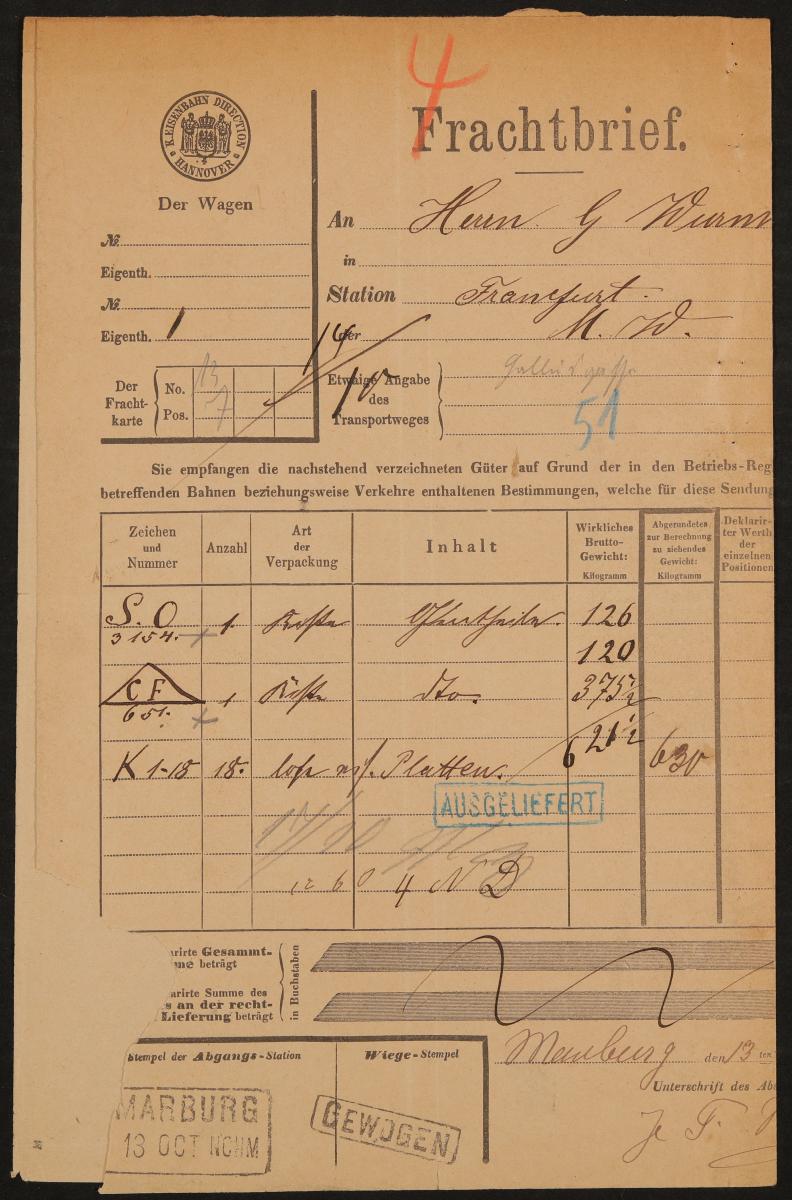 4
K. EISENBAHN DIRECTION
HANNOVER
Frachtbrief.
Der Wagen
№
Eigenth.
№
Eigenth. 1
An Herrn G Wurm
in
Station Frankfurt.
der M. W.
14
10
Der Frachtkarte
No. 13
Pos. 7
Etwaige Angabe
des
Transportweges
Gallusgasse
51
Sie empfangen die nachstehend verzeichneten Güter auf Grund der in den Betriebs-Reg
betreffenden Bahnen beziehungsweise Verkehre enthaltenen Bestimmungen, welche für diese Sendung
Zeichen
und
Nummer
Anzahl
Art
der
Verpackung
Inhalt
Wirkliches
Brutto-
Gewicht:
Kilogramm
Abgerundetes
zur Berechnung
zu ziehendes
Gewicht:
Kilogramm
Deklarir-
ter Werth
der
einzelnen
Positionen
S. O 1 Kiste 126
3154.
120
C F 1 Kiste dto. 375½
651.
621½
K 1-18 18. lose Platten. 630
AUSGELIEFERT
17/10
4 N D
arirte Gesammt-
me beträgt
arirte Summe des
s an der recht-
Lieferung beträgt
in Buchstaben
Stempel der Abgangs-Station
Wiege-Stempel
Marburg den 13 ten
Unterschrift des Abs
MARBURG
13 OCT NCHM
GEWOGEN